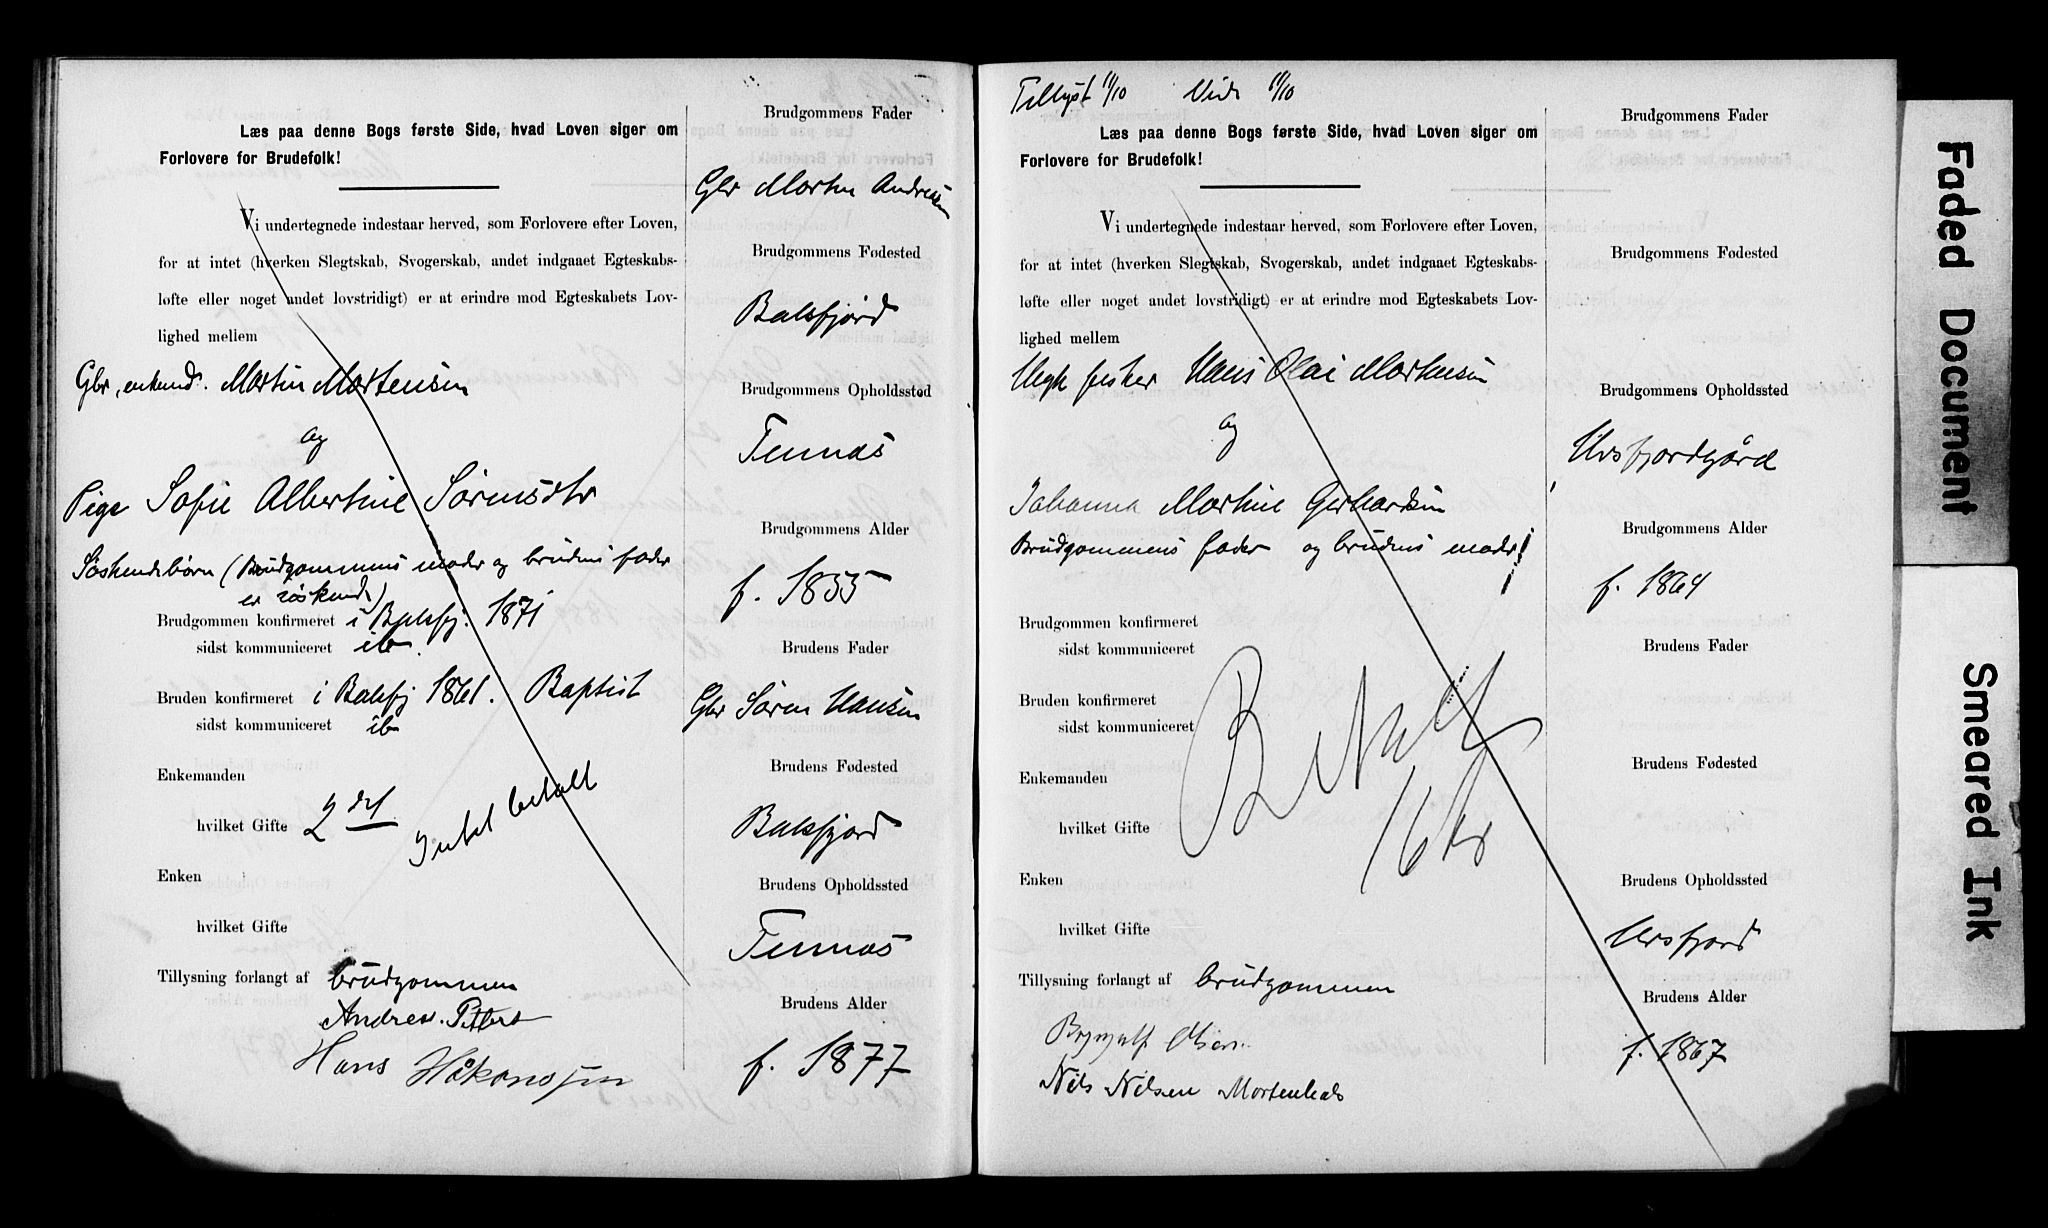 Læs paa denne Bogs første Side, hvad Loven siger om
Forlovere for Brudefolk!
Vi undertegnede indestaar herved, som Forlovere efter Loven,
for at intet (hverken Slegtskab, Svogerskab, andet indgaaet Egteskabs-
løfte eller noget andet lovstridigt) er at erindre mod Egteskabets Lov-
lighed mellem
Gbr, enkemd. Martin Mortensen
og
Pige Sofie Albertine Sørensdtr
Søskendebørn (Brudgommens moder og brudens fader
er søskende)
Brudgommen konfirmeret i Balsfj. 1871
sidst kommuniceret ib.
Bruden konfirmeret i Balsfj 1861. Baptist
sidst kommuniceret ib
Enkemanden
hvilket Gifte 2det
Intet betalt
Enken
hvilket Gifte
Tillysning forlangt af brudgommen
Andreas Peders
Hans Håkonsen
Brudgommens Fader
Gbr Morten Andreassen
Brudgommens Fødested
Balsfjord
Brudgommens Opholdssted
Tennas
Brudgommens Alder
f. 1855
Brudens Fader
Gbr Søren Hansen
Brudens Fødested
Balsfjord
Brudens Opholdssted
Tennas
Brudens Alder
f. 1877
Tillyst 11/10 Vide 11/10
Læs paa denne Bogs første Side, hvad Loven siger om
Forlovere for Brudefolk!
Vi undertegnede indestaar herved, som Forlovere efter Loven,
for at intet (hverken Slegtskab, Svogerskab, andet indgaaet Egteskabs-
løfte eller noget andet lovstridigt) er at erindre mod Egteskabets Lov-
lighed mellem
Ungk fisker Hans Olai Mortensen
og
Johanna Martine Gerhardsen
Brudgommens fader og brudens moder!
Brudgommen konfirmeret
sidst kommuniceret
Bruden konfirmeret
sidst kommuniceret
Betalt
16 kr
Enkemanden
hvilket Gifte
Enken
hvilket Gifte
Tillysning forlangt af brudgommen
Brynjulf Olsen
Nils Nilsen Mortenhals
Brudgommens Fader
Brudgommens Fødested
Brudgommens Opholdssted
Ursfjordgård
Brudgommens Alder
f. 1864
Brudens Fader
Brudens Fødested
Brudens Opholdssted
Ursfjord
Brudens Alder
f. 1867
Faded Document
Smeared Ink